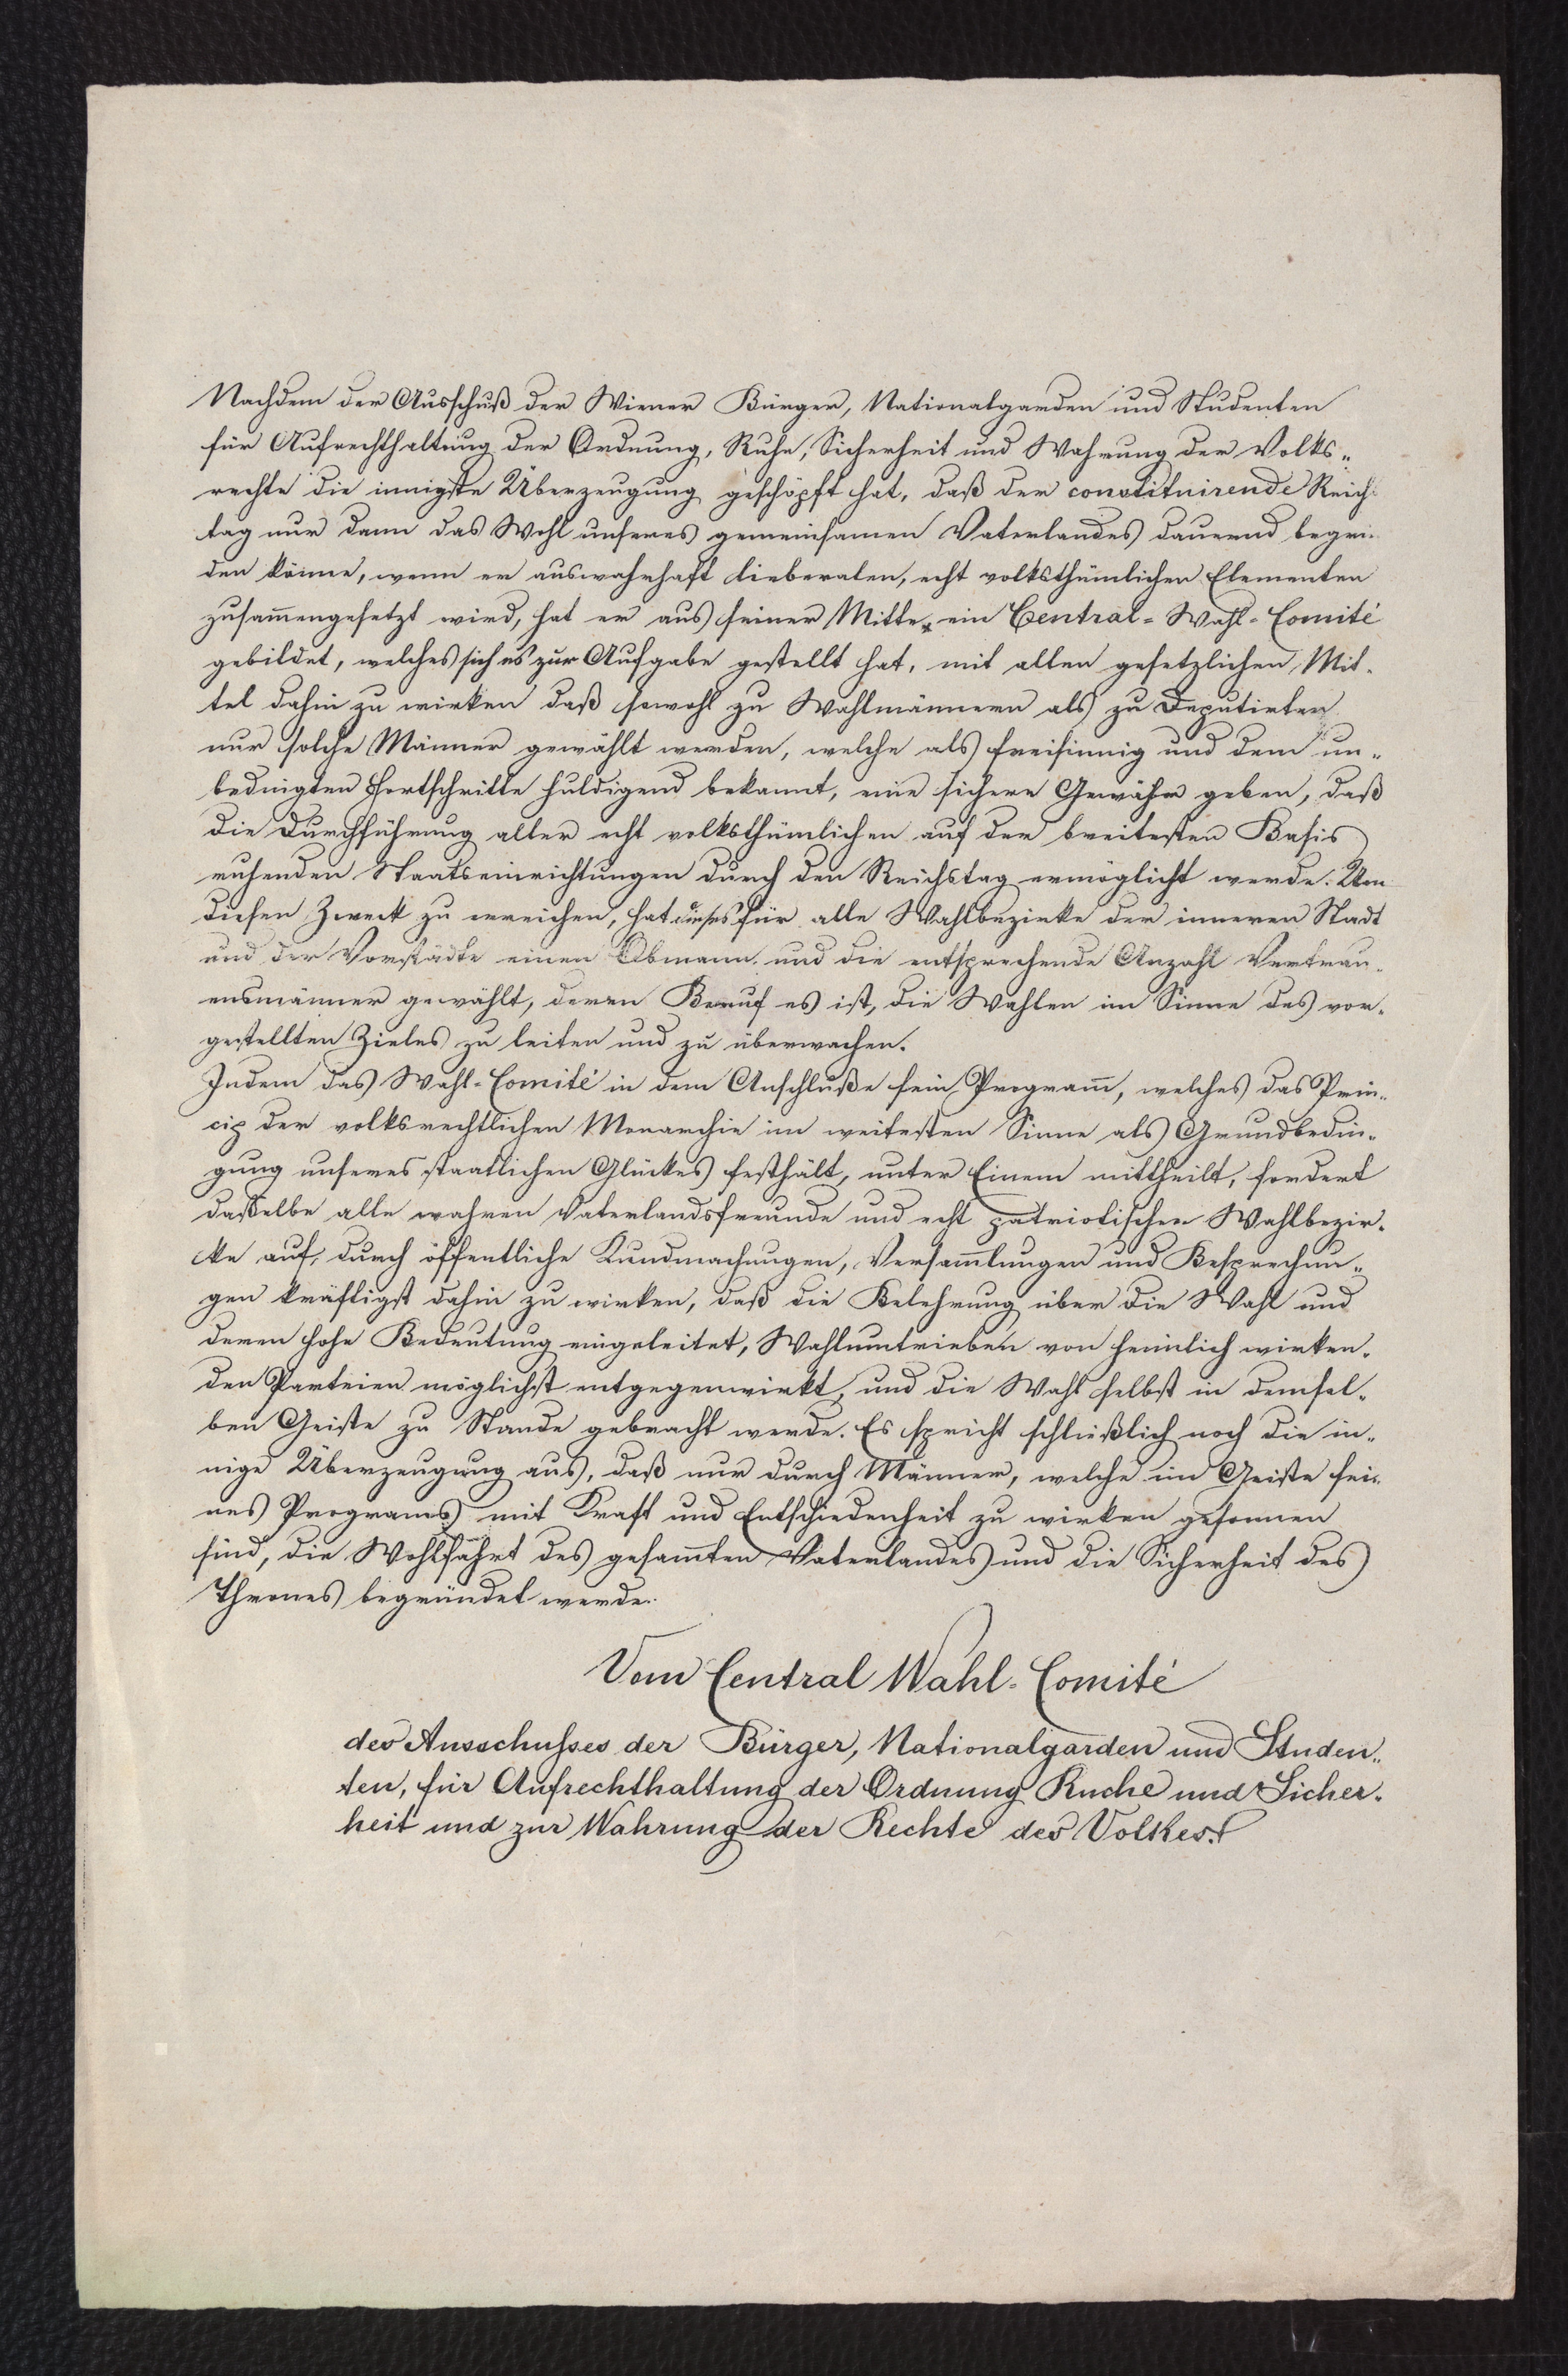 Nachdem der Ausschuß der Wiener Bürger, Nationalgarden und Studenten
für Aufrechthaltung der Ordnung, Ruhe, Sicherheit und Wahrung der Volks„
rechte die innigste Überzeugung geschöpft hat, daß der constituirende Reichs
tag nur dann das Wohl unseres gemeinsamen Vaterlandes dauernd begrün
den könne, wenn er aus wahrhaft lieberalen, echt volksthümlichen Elementen
zusam̄engesetzt wird, hat er aus seiner Mitte ein Central-Wahl-Comité
gebildet, welches sich es zur Aufgabe gestellt hat, mit allen gesetzlichen Mit-
tel dahin zu wirken daß sowohl zu Wahlmännern als zu Deputirten
nur solche Männer gewählt werden, welche als freisinnig und dem un-
bedingten Fortschritte huldigend bekannt, eine sichere Gewähr geben, daß
die Durchführung aller echt volksthümlichen auf der breitesten Basis
ruhenden Staatseinrichtungen durch den Reichstag ermöglicht werde. Um
diesen Zweck zu erreichen, hat dieses für alle Wahlbezirke der inneren Stadt
und der Vorstädte einen Obmann und die entsprechende Anzahl Vertrau-
ensmänner gewählt, deren Beruf es ist, die Wahlen im Sinne des vor-
gestellten Zieles zu leiten und zu überwachen.
Indem das Wahl-Comité in dem Anschluße sein Program̄, welches das Prin-
cip der volksrechtlichen Monarchie im weitesten Sinne als Grundbedin-
gung unseres staatlichen Glückes festhält, unter Einem mittheilt, fordert
daßelbe alle wahren Vaterlandsfreunde und echt patriotischen Wahlbezir-
ke auf, durch öffentliche Kundmachungen, Versam̄lungen und Besprechun„
gen kräftigst dahin zu wirken, daß die Belehrung über die Wahl und
deren hohe Bedeutung eingeleitet, Wahlumtrieben von heimlich wirken-
den Parteien möglichst entgegenwirkt, und die Wahl selbst in demsel-
ben Geiste zu Stande gebracht werde. Es spricht schließlich noch die in-
nige Überzeugung aus, daß nur durch Männer, welche im Geiste sei-
nes Program̄s mit Kraft und Entschiedenheit zu wirken gesonnen
sind, die Wohlfahrt des gesam̄ten Vaterlandes und die Sicherheit des
Thrones begründet werde.
Vom Central Wahl-Comité
des Ausschusses der Bürger, Nationalgarden und Studen„
ten, für Aufrechthaltung der Ordnung Ruche und Sicher-
heit und zur Wahrung der Rechte des Volkes.